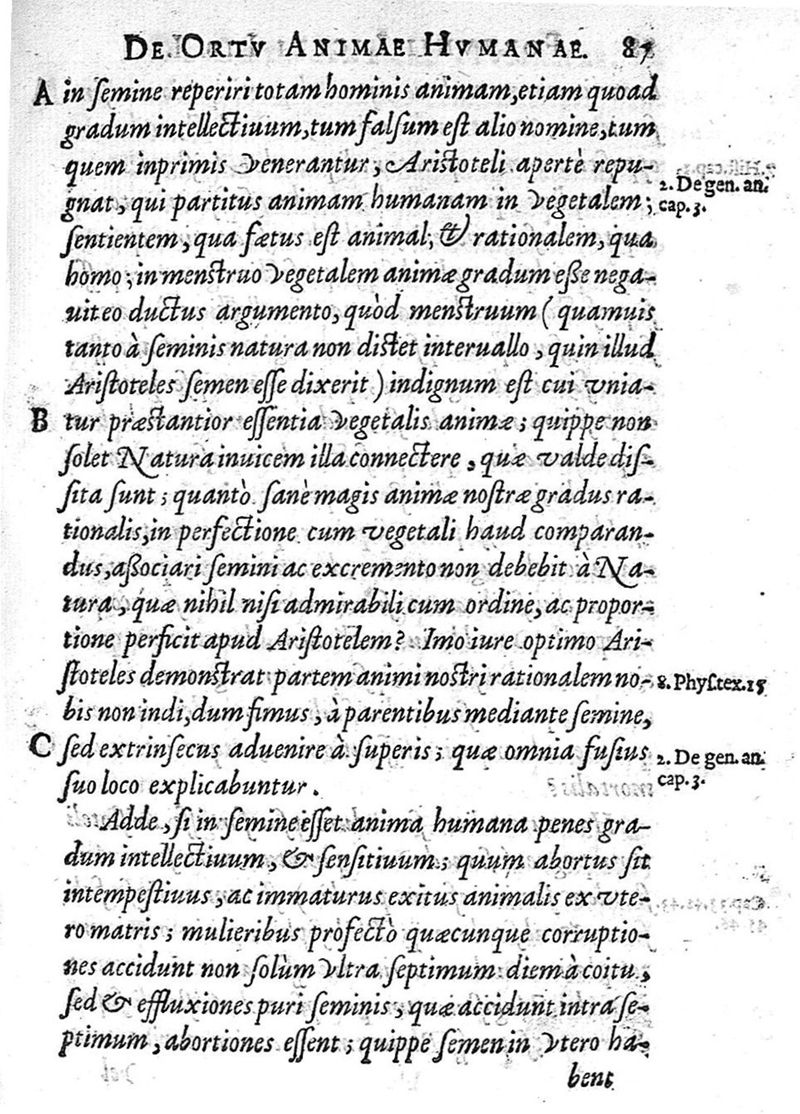 DE ORTV ANIMAE HVMANAE. 87
A in ſemine reperiri totam hominis animam, etiam quoad
gradum intellectiuum, tum falſum eſt alio nomine, tum
quem inprimis venerantur, Ariſtoteli apertè repu-
gnat, qui partitus animam humanam in vegetalem;
2. De gen. an.
cap. 3.
ſentientem, qua fætus eſt animal; & rationalem, qua
homo; in menſtruo vegetalem animæ gradum eſſe nega-
uit eo ductus argumento, quòd menſtruum ( quamuis
tanto à ſeminis natura non diſtet interuallo, quin illud
Ariſtoteles ſemen eſſe dixerit ) indignum eſt cui vnia-
B tur præſtantior eſſentia vegetalis animæ; quippe non
ſolet Natura inuicem illa connectere, quæ valde diſ-
ſita ſunt; quantò ſanè magis animæ noſtræ gradus ra-
tionalis, in perfectione cum vegetali haud comparan-
dus, aſſociari ſemini ac excremento non debebit à Na-
tura, quæ nihil niſi admirabili cum ordine, ac propor-
tione perficit apud Ariſtotelem? Imo iure optimo Ari-
ſtoteles demonſtrat partem animi noſtri rationalem no-
8. Phyſ. tex. 15
bis non indi, dum fimus, à parentibus mediante ſemine,
C ſed extrinſecus aduenire à ſuperis; quæ omnia fuſius
2. De gen. an.
cap. 3.
ſuo loco explicabuntur.
Adde, ſi in ſemine eſſet anima humana penes gra-
dum intellectiuum, & ſenſitiuum; quum abortus ſit
intempeſtiuus, ac immaturus exitus animalis ex vte-
ro matris; mulieribus profectò quæcunque corruptio-
nes accidunt non ſolùm vltra ſeptimum diem à coitu,
ſed & effluxiones puri ſeminis, quæ accidunt intra ſe-
ptimum, abortiones eſſent; quippe ſemen in vtero ha-
bens